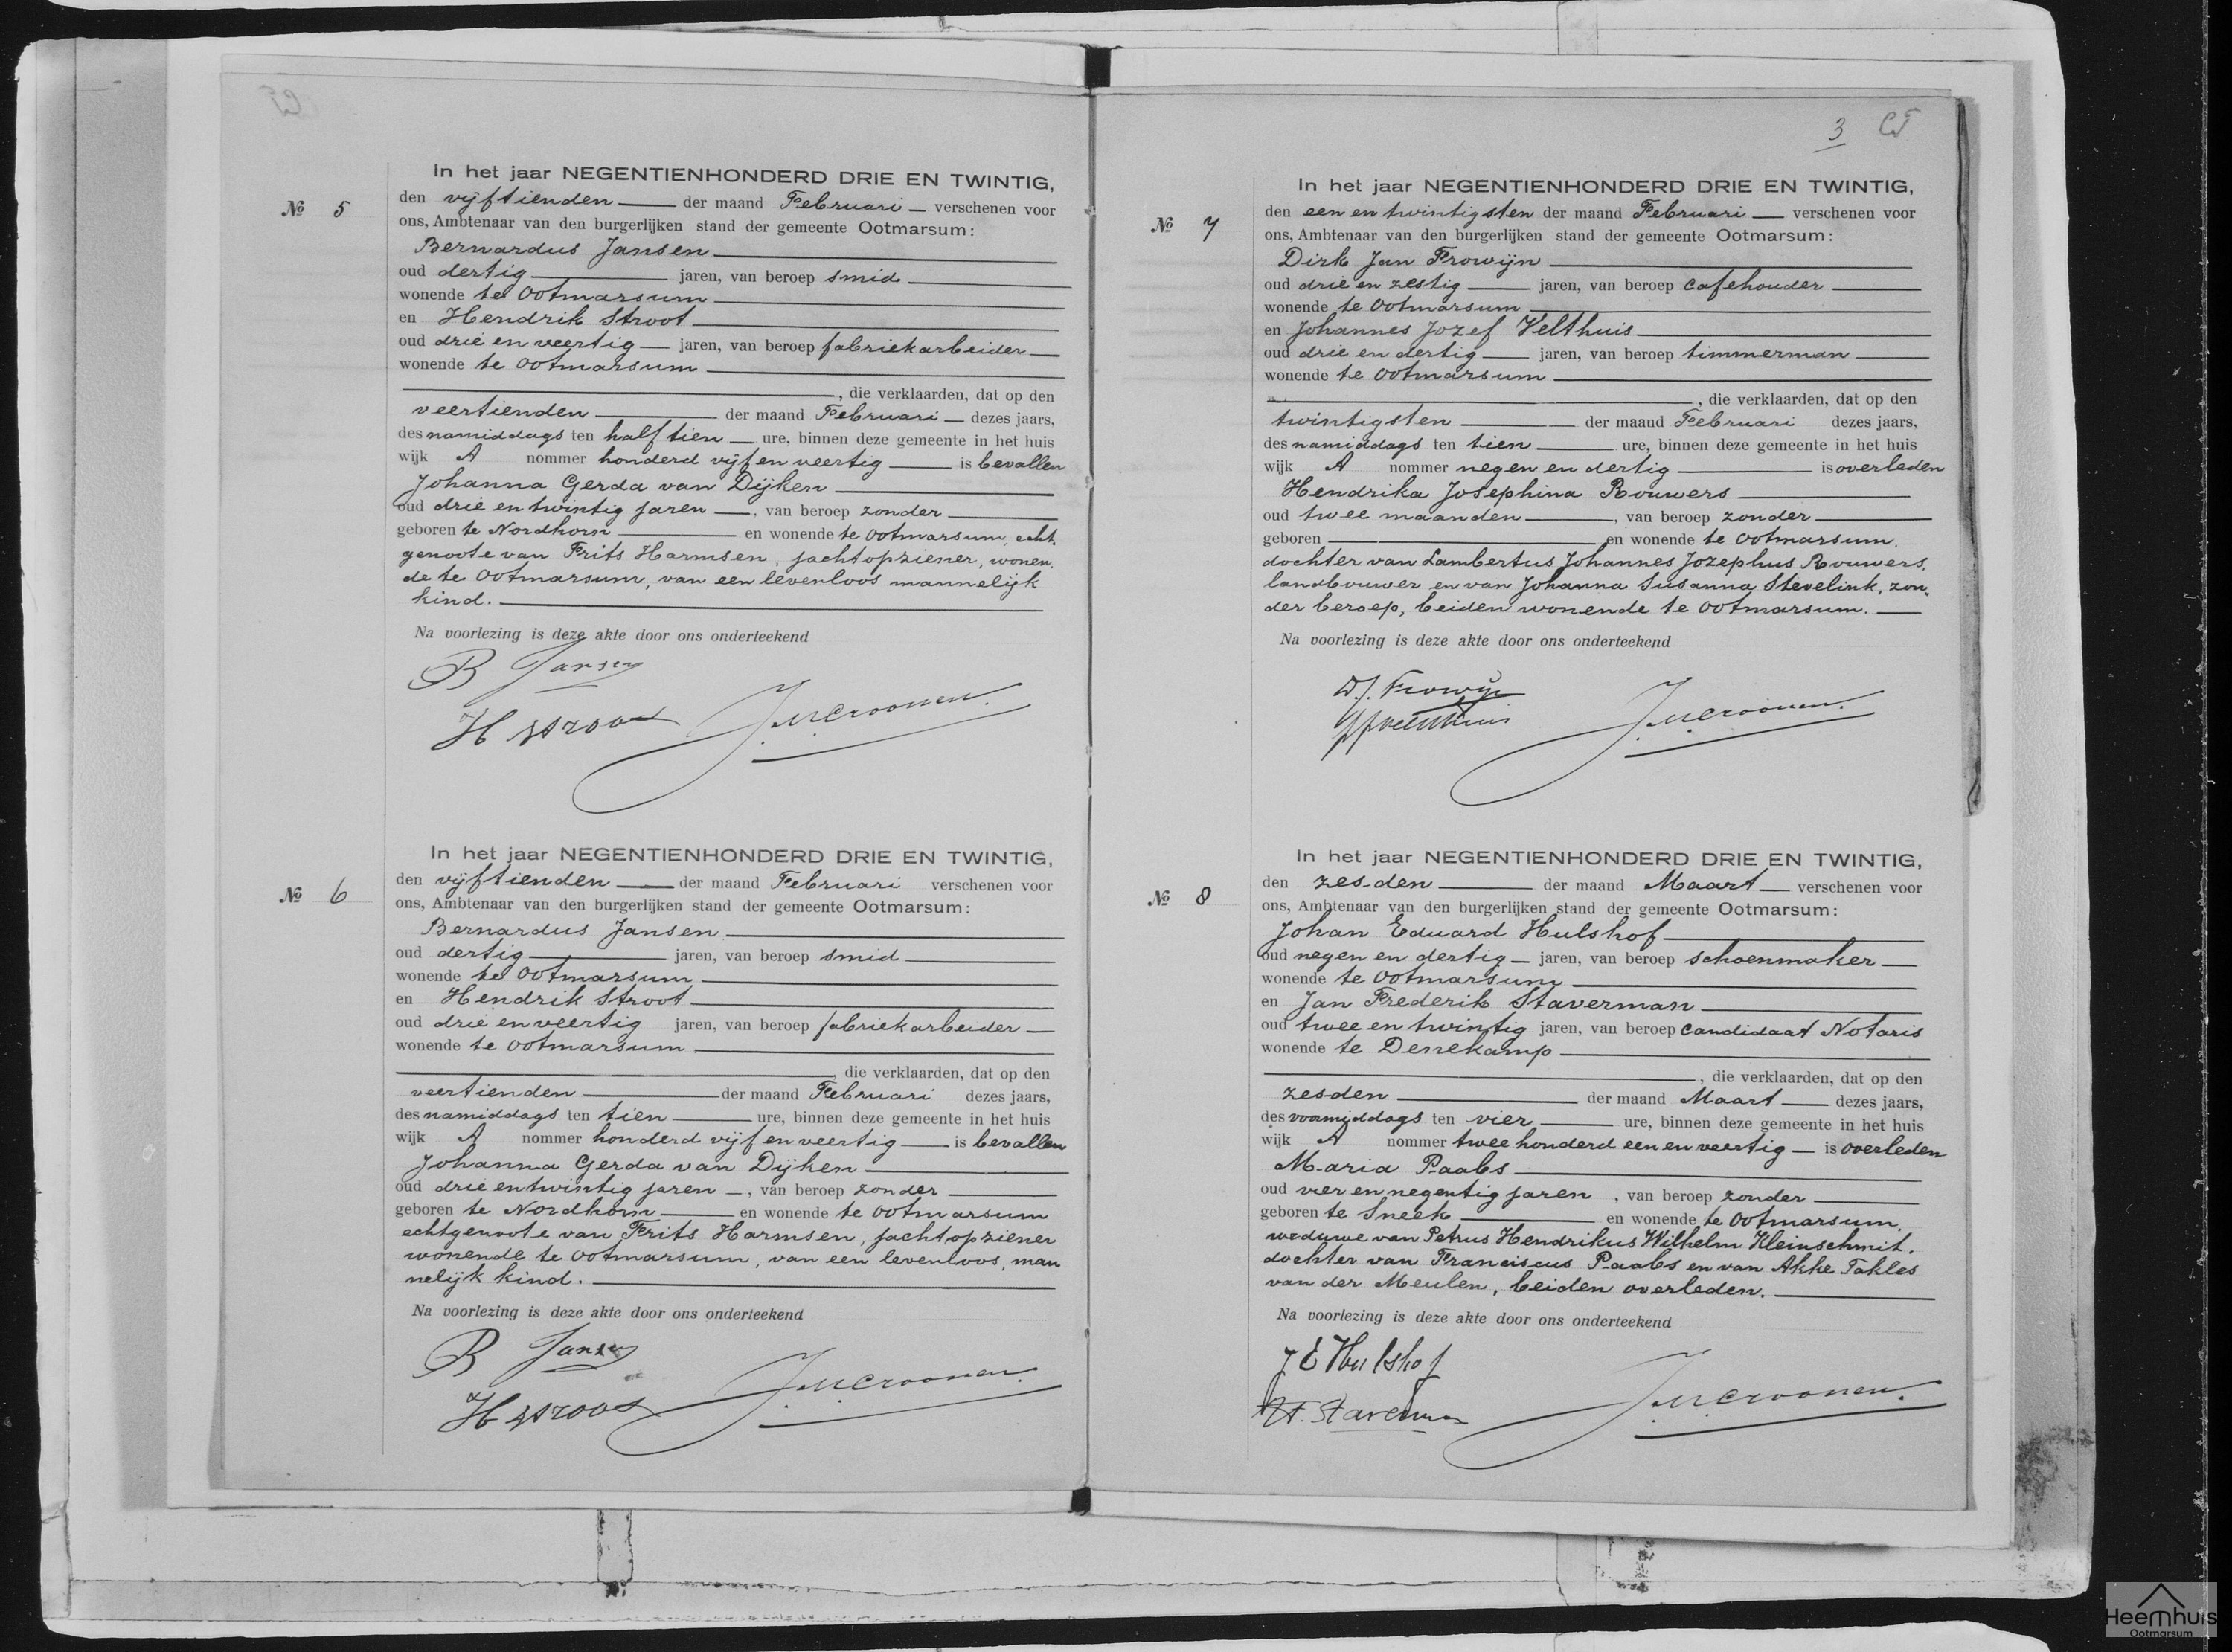 In het jaar NEGENTIENHONDERD DRIE EN TWINTIG,
№ 5
den vijftienden der maand Februari verschenen voor
ons, Ambtenaar van den burgerlijken stand der gemeente Ootmarsum:
Bernardus Jansen
oud dertig jaren, van beroep smid
wonende te Ootmarsum
en Hendrik Stroot
oud drie en veertig jaren, van beroep fabriekarbeider
wonende te Ootmarsum
, die verklaarden, dat op den
veertienden der maand Februari dezes jaars,
des namiddags ten half tien ure, binnen deze gemeente in het huis
wijk A nommer honderd vijf en veertig is bevallen
Johanna Gerda van Dijken
oud drie en twintig jaren, van beroep zonder
geboren te Nordhorn en wonende te Ootmarsum, echt-
genoote van Frits Harmsen, jachtopziener, wonen-
de te Ootmarsum, van een levenloos mannelijk
kind.
Na voorlezing is deze akte door ons onderteekend
B Jansen
H Stroot J.M.Croonen.
In het jaar NEGENTIENHONDERD DRIE EN TWINTIG,
№ 6
den vijftienden der maand Februari verschenen voor
ons, Ambtenaar van den burgerlijken stand der gemeente Ootmarsum:
Bernardus Jansen
oud dertig jaren, van beroep smid
wonende te Ootmarsum
en Hendrik Stroot
oud drie en veertig jaren, van beroep fabriekarbeider
wonende te Ootmarsum
, die verklaarden, dat op den
veertienden der maand Februari dezes jaars,
des namiddags ten tien ure, binnen deze gemeente in het huis
wijk A nommer honderd vijf en veertig is bevallen
Johanna Gerda van Dijken
oud drie en twintig jaren, van beroep zonder
geboren te Nordhorn en wonende te Ootmarsum
echtgenoote van Frits Harmsen, jachtopziener
wonende te Ootmarsum, van een levenloos, man
nelijk kind.
Na voorlezing is deze akte door ons onderteekend
B Jansen
H Stroot J.M.Croonen.
3
In het jaar NEGENTIENHONDERD DRIE EN TWINTIG,
№ 7
den een en twintigsten der maand Februari verschenen voor
ons, Ambtenaar van den burgerlijken stand der gemeente Ootmarsum:
Dirk Jan Frowijn
oud drie en zestig jaren, van beroep cafehouder
wonende te Ootmarsum
en Johannes Jozef Velthuis
oud drie en dertig jaren, van beroep timmerman
wonende te Ootmarsum
, die verklaarden, dat op den
twintigsten der maand Februari dezes jaars,
des namiddags ten tien ure, binnen deze gemeente in het huis
wijk A nommer negen en dertig is overleden
Hendrika Josephina Rouwers
oud twee maanden, van beroep zonder
geboren en wonende te Ootmarsum,
dochter van Lambertus Johannes Jozephus Rouwers,
landbouwer en van Johanna Susanna Stevelink, zon-
der beroep, beiden wonende te Ootmarsum.
Na voorlezing is deze akte door ons onderteekend
D.J. Frowijn
JJVelthuis J.M.Croonen.
In het jaar NEGENTIENHONDERD DRIE EN TWINTIG,
№ 8
den zesden der maand Maart verschenen voor
ons, Ambtenaar van den burgerlijken stand der gemeente Ootmarsum:
Johan Eduard Hulshof
oud negen en dertig jaren, van beroep schoenmaker
wonende te Ootmarsum
en Jan Frederik Staverman
oud twee en twintig jaren, van beroep candidaat Notaris
wonende te Denekamp
, die verklaarden, dat op den
zesden der maand Maart dezes jaars,
des voormiddags ten vier ure, binnen deze gemeente in het huis
wijk A nommer twee honderd een en veertig is overleden
Maria Paabs
oud vier en negentig jaren, van beroep zonder
geboren te Sneek en wonende te Ootmarsum,
weduwe van Petrus Hendrikus Wilhelm Kleinschmit.
dochter van Franciscus Paabs en van Akke Takles
van der Meulen, beiden overleden.
Na voorlezing is deze akte door ons onderteekend
J E Hulshof
J.F. Staverman J.M.Croonen.
Heemhuis
Ootmarsum